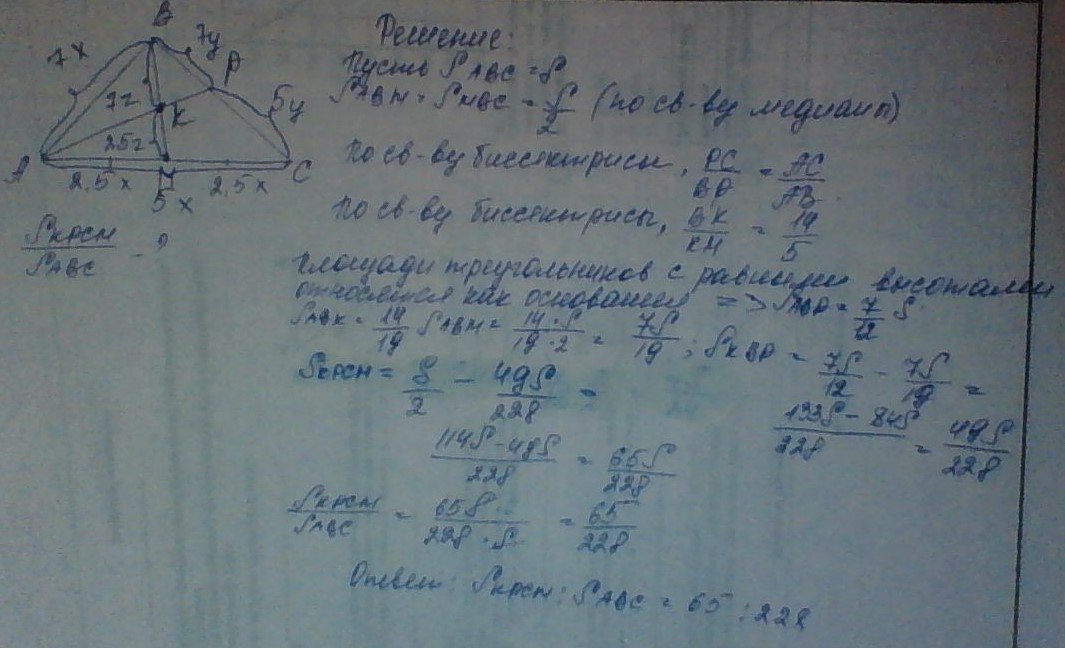 B
7x
7y
P
7z
K
5y
2,5z
A
2,5x
M
2,5x
C
5x
S_KPCM / S_ABC - ?
Решение:
Пусть S_ABC = S
S_ABM = S_MBC = S/2 (по св-ву медианы)
По св-ву биссектрисы, PC/BP = AC/AB
По св-ву биссектрисы, BK/KM = 14/5
Площади треугольников с равными высотами
относятся как основания => S_ABP = 7/12 S
S_ABK = 14/19 S_ABM = 14·S/19·2 = 7S/19; S_KBP = 7S/12 - 7S/19 =
133S - 84S/228 = 49S/228
S_KPCM = S/2 - 49S/228 =
114S - 49S/228 = 65S/228
S_KPCM/S_ABC = 65S/228·S = 65/228
Ответ: S_KPCM : S_ABC = 65 : 228